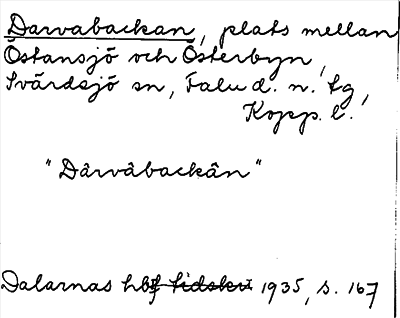 Darvabackan, plats mellan
Östansjö och Österbyn,
Svärdsjö sn, Falu d. n. tg,
Kopp. l.
"Dârvâbackân"
Dalarnas hbf tidskr 1935, s. 167